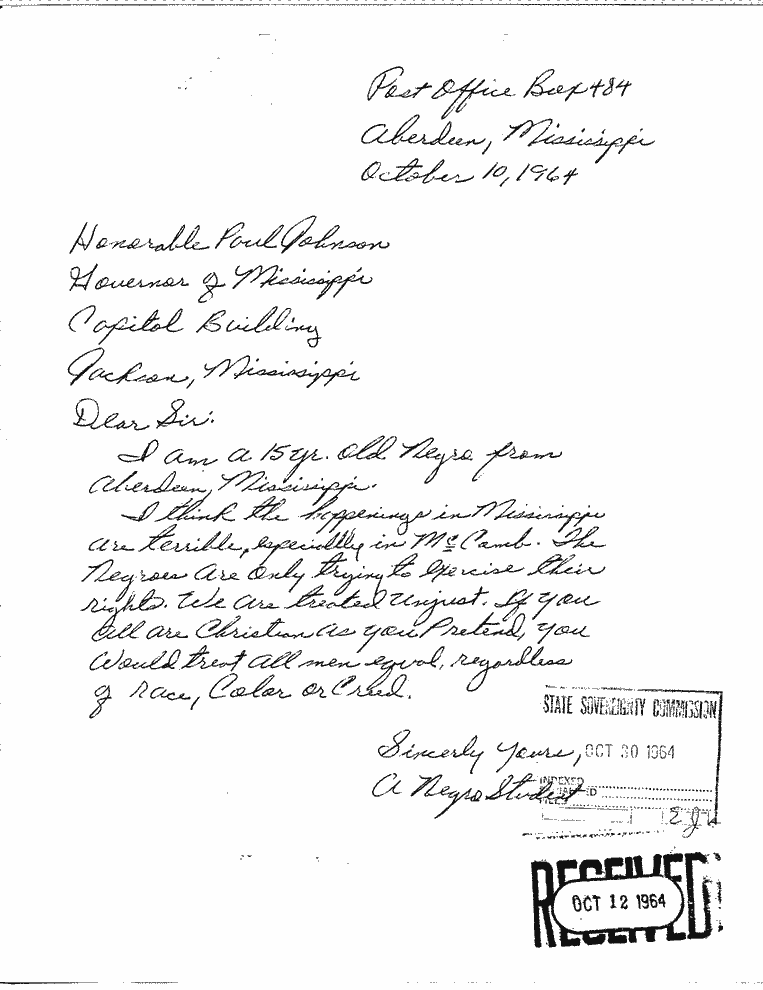 Post Office Box 484
Aberdeen, Mississippi
October 10, 1964
Honorable Paul Johnson
Governor of Mississippi
Capitol Building
Jackson, Mississippi
Dear Sir:
I am a 15 yr. old Negro from
Aberdeen, Mississippi.
I think the happenings in Mississippi
are terrible, especially in McComb. The
Negroes are only trying to exercise their
rights. We are treated unjust. If you
all are Christian as you Pretend, you
would treat all men equal, regardless
of race, Color or Creed.
STATE SOVEREIGNTY COMMISSION
Sincerly yours, OCT 30 1964
INDEXED
A Negro Student
RECEIVED
OCT 12 1964